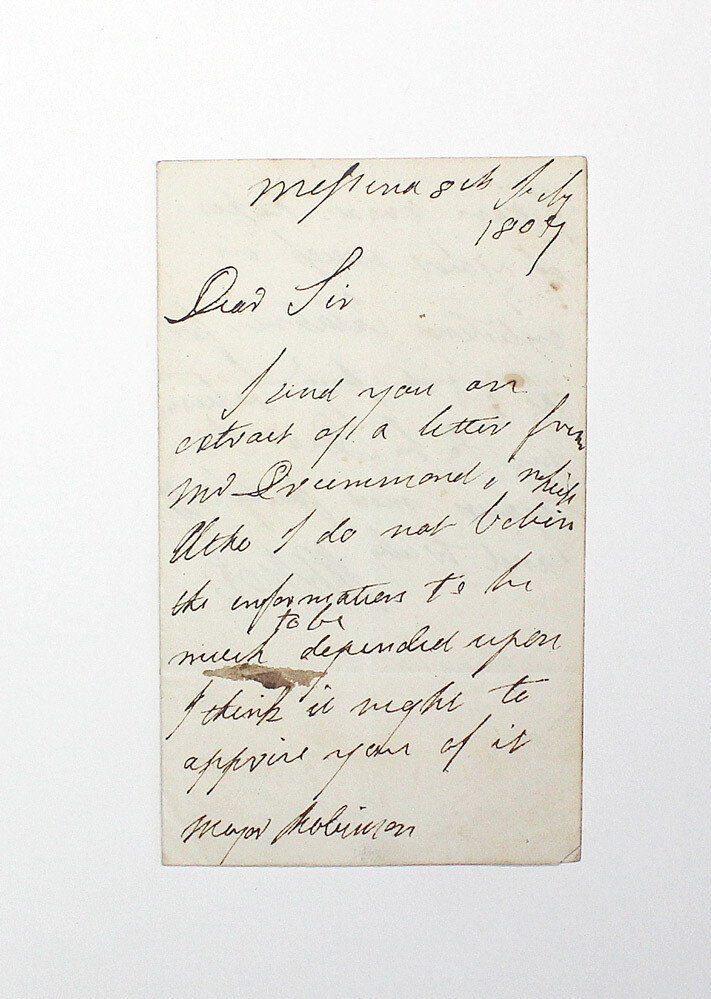 Messina 8th July
1807
Dear Sir
I send you an
extract of a letter from
Mr Drummond, which
Altho I do not beleive
the information to be
to be
much depended upon
I think it right to
apprise you of it
Major Robinson